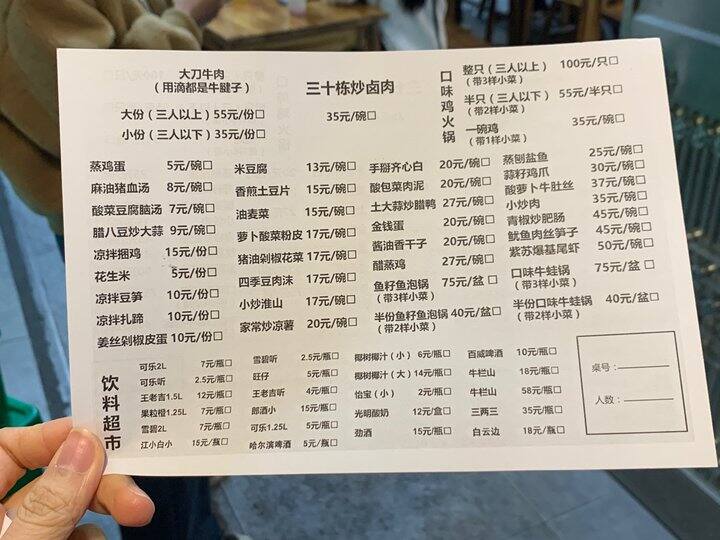 大刀牛肉
(用滴都是牛腱子)
大份(三人以上)55元/份□
小份(三人以下)35元/份□
三十栋炒卤肉
35元/碗□
口味鸡火锅
整只(三人以上) 100元/只□
(带3样小菜)
半只(三人以下) 55元/半只□
(带2样小菜)
一碗鸡 35元/碗□
(带1样小菜)
蒸鸡蛋 5元/碗□
麻油猪血汤 8元/碗□
酸菜豆腐脑汤 7元/碗□
腊八豆炒大蒜 9元/碗□
凉拌捆鸡 15元/份□
花生米 5元/份□
凉拌豆笋 10元/份□
凉拌扎蹄 10元/份□
姜丝剁椒皮蛋 10元/份□
米豆腐 13元/碗□
香煎土豆片 15元/碗□
油麦菜 15元/碗□
萝卜酸菜粉皮 17元/碗□
猪油剁椒花菜 17元/碗□
四季豆肉沫 17元/碗□
小炒淮山 17元/碗□
家常炒凉薯 20元/碗□
手掰齐心白 20元/碗□
酸包菜肉泥 20元/碗□
土大蒜炒腊鸭 27元/碗□
金钱蛋 20元/碗□
酱油香干子 20元/碗□
醋蒸鸡 27元/碗□
鱼籽鱼泡锅 75元/盆□
(带3样小菜)
半份鱼籽鱼泡锅 40元/盆□
(带2样小菜)
蒸刨盐鱼 25元/碗□
蒜籽鸡爪 30元/碗□
酸萝卜牛肚丝 37元/碗□
小炒肉 35元/碗□
青椒炒肥肠 45元/碗□
鱿鱼肉丝笋子 45元/碗□
紫苏爆基尾虾 50元/碗□
口味牛蛙锅 75元/盆□
(带3样小菜)
半份口味牛蛙锅 40元/盆□
(带2样小菜)
饮料超市
可乐2L 7元/瓶□
可乐听 2.5元/瓶□
王老吉1.5L 12元/瓶□
果粒橙1.25L 7元/瓶□
雪碧2L 7元/瓶□
江小白小 15元/瓶□
雪碧听 2.5元/瓶□
旺仔 5元/瓶□
王老吉听 4元/瓶□
郎酒小 15元/瓶□
可乐1.25L 5元/瓶□
哈尔滨啤酒 5元/瓶□
椰树椰汁(小) 6元/瓶□
椰树椰汁(大) 14元/瓶□
怡宝(小) 2元/瓶□
光明酸奶 12元/盒□
劲酒 15元/瓶□
百威啤酒 10元/瓶□
牛栏山 18元/瓶□
牛栏山 58元/瓶□
三两三 35元/瓶□
白云边 18元/瓶□
桌号:
人数: